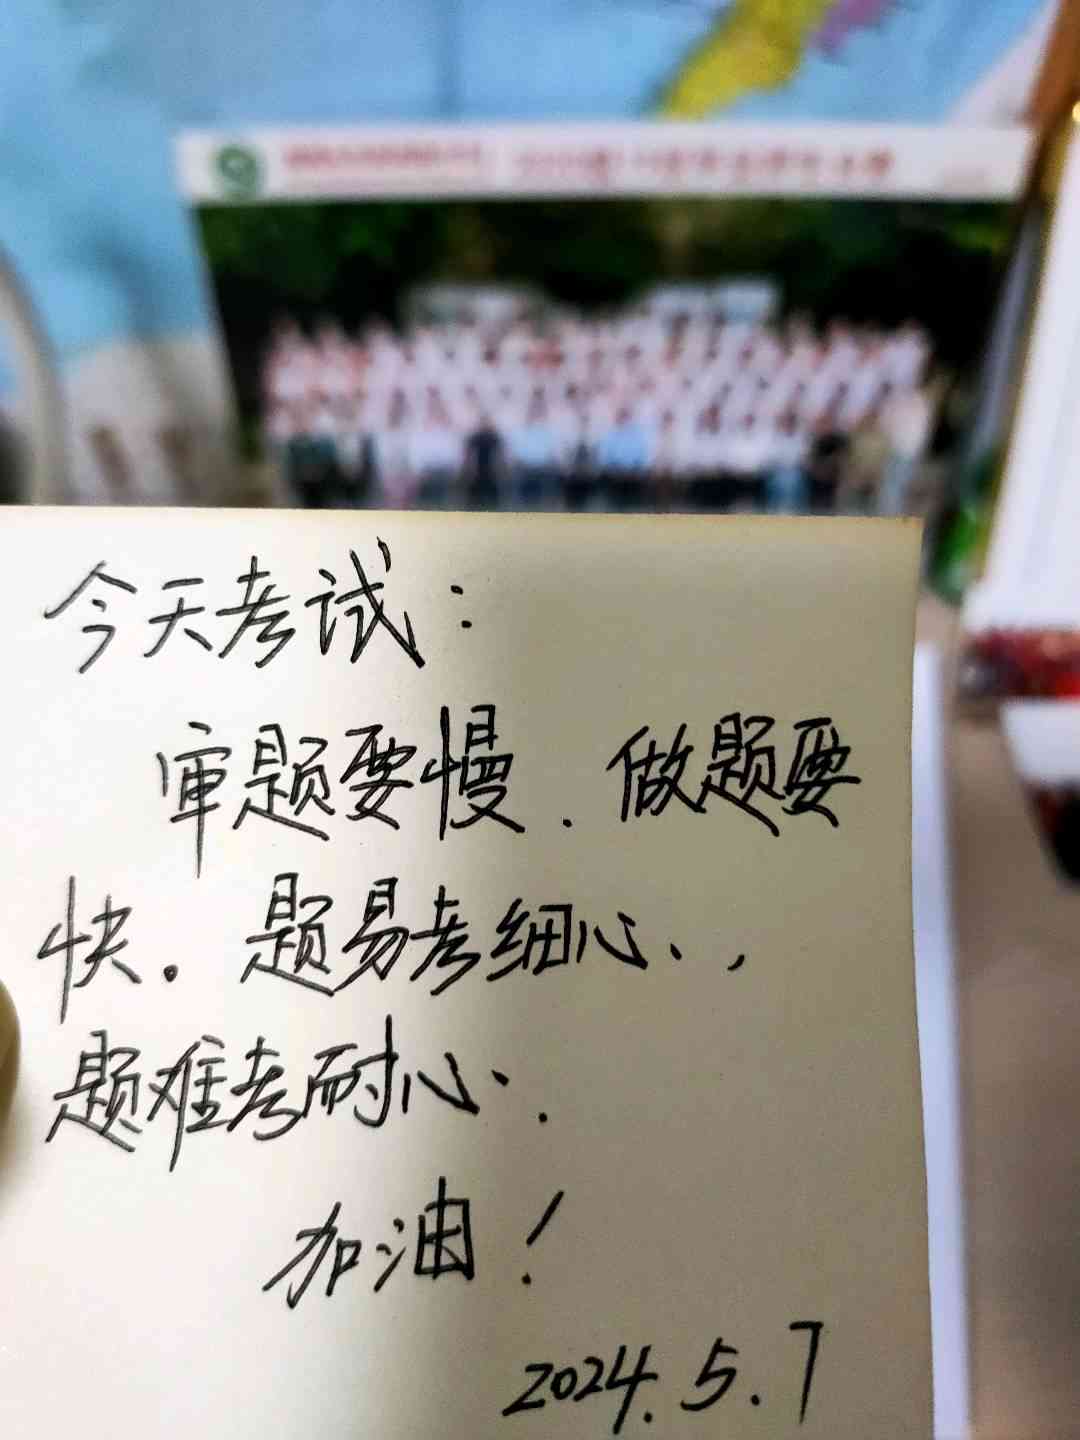 今天考试：
审题要慢．做题要
快。题易考细心，
题难考耐心．
加油！
2024.5.7